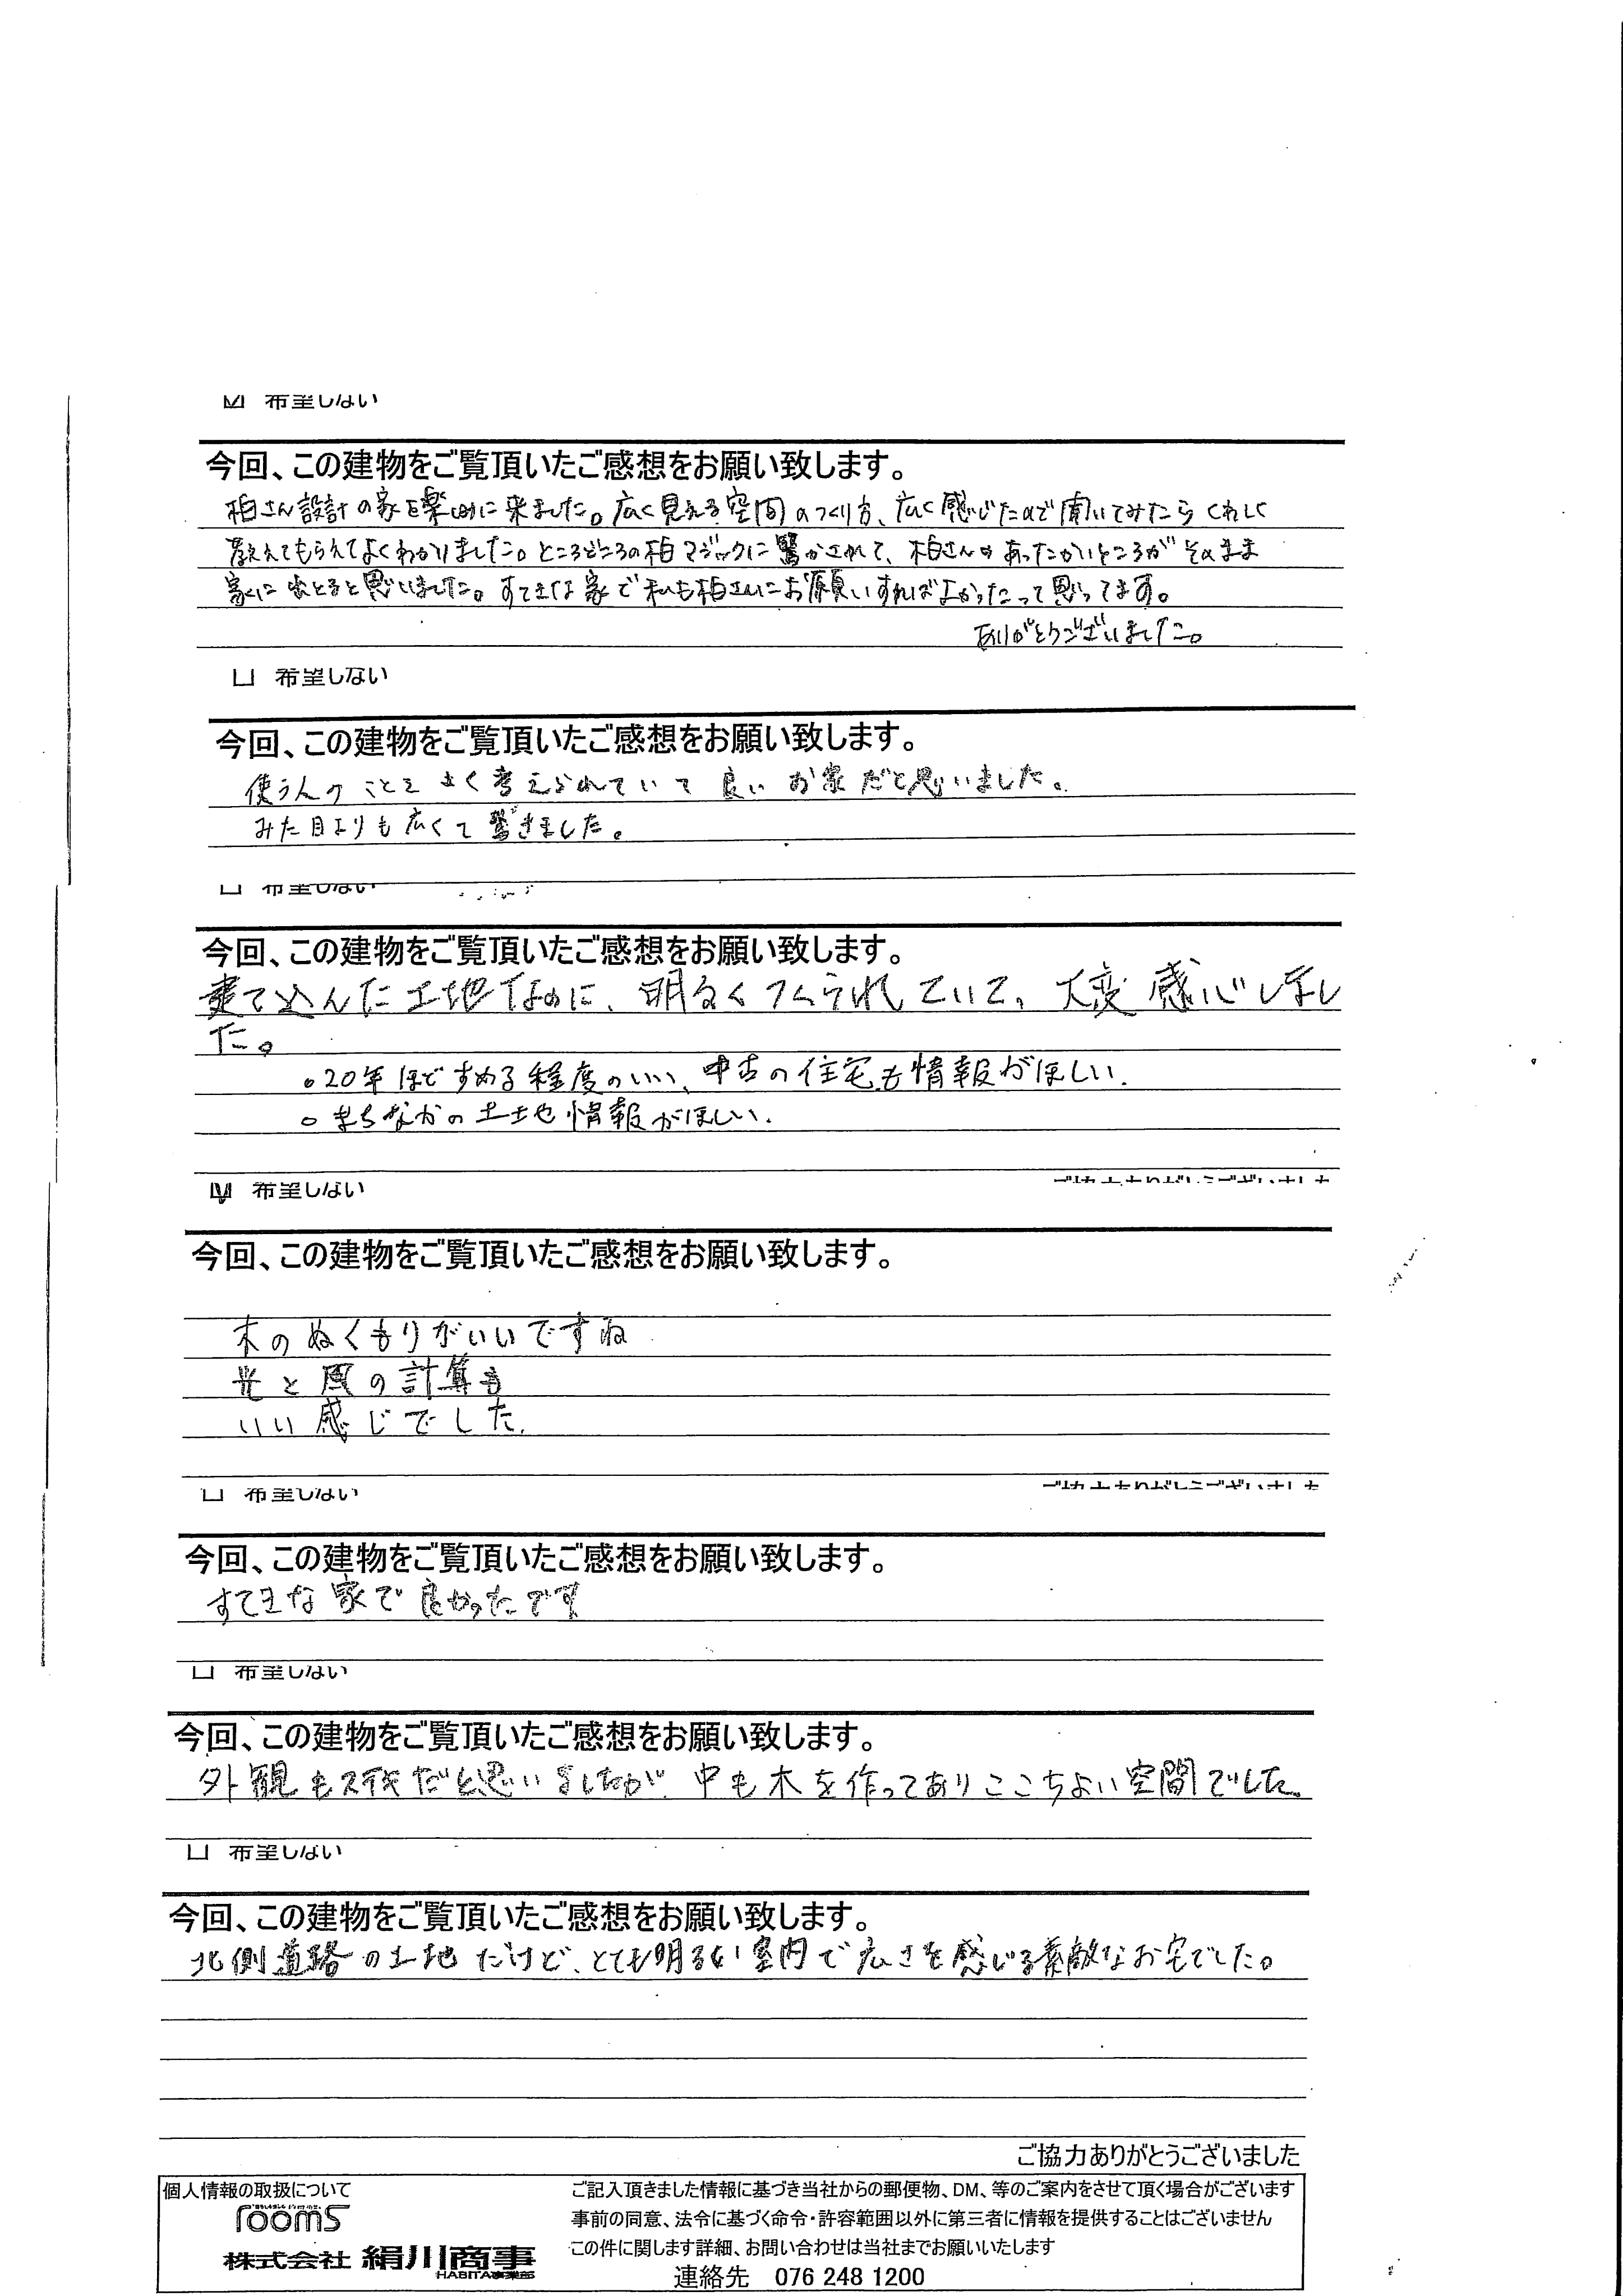 ☑ 希望しない
今回、この建物をご覧頂いたご感想をお願い致します。
柏さん設計の家を楽しみに来ました。広く見える空間のつくり方、広く感じたので聞いてみたらくわしく
教えてもらえてよくわかりました。ところどころの柏マジックに驚かされて、柏さんのあったかいところがそのまま
家に出とると思いました。すてきな家で私も柏さんにお願いすればよかったって思ってます。
ありがとうございました。
□ 希望しない
今回、この建物をご覧頂いたご感想をお願い致します。
使う人のことをよく考えられていて良いお家だと思いました。
みた目よりも広くて驚きました。
□ 希望しない
今回、この建物をご覧頂いたご感想をお願い致します。
建て込んだ土地なのに、明るくつくられていて、大変感心しまし
た。
○20年ほどすめる程度のいい、中古の住宅も情報がほしい.
○まちなかの土地情報がほしい.
☑ 希望しない
ご協力ありがとうございました
今回、この建物をご覧頂いたご感想をお願い致します。
木のぬくもりがいいですね
光と風の計算も
いい感じでした.
□ 希望しない
ご協力ありがとうございました
今回、この建物をご覧頂いたご感想をお願い致します。
すてきな家で良かったです
□ 希望しない
今回、この建物をご覧頂いたご感想をお願い致します。
外観もステキだと思いましたが、中も木を作ってありここちよい空間でした。
□ 希望しない
今回、この建物をご覧頂いたご感想をお願い致します。
北側道路の土地だけど、とても明るい室内で広さを感じる素敵なお宅でした。
ご協力ありがとうございました
個人情報の取扱について
rooms
株式会社 絹川商事
HABITA事業部
ご記入頂きました情報に基づき当社からの郵便物、DM、等のご案内をさせて頂く場合がございます
事前の同意、法令に基づく命令・許容範囲以外に第三者に情報を提供することはございません
この件に関します詳細、お問い合わせは当社までお願いいたします
連絡先 076 248 1200